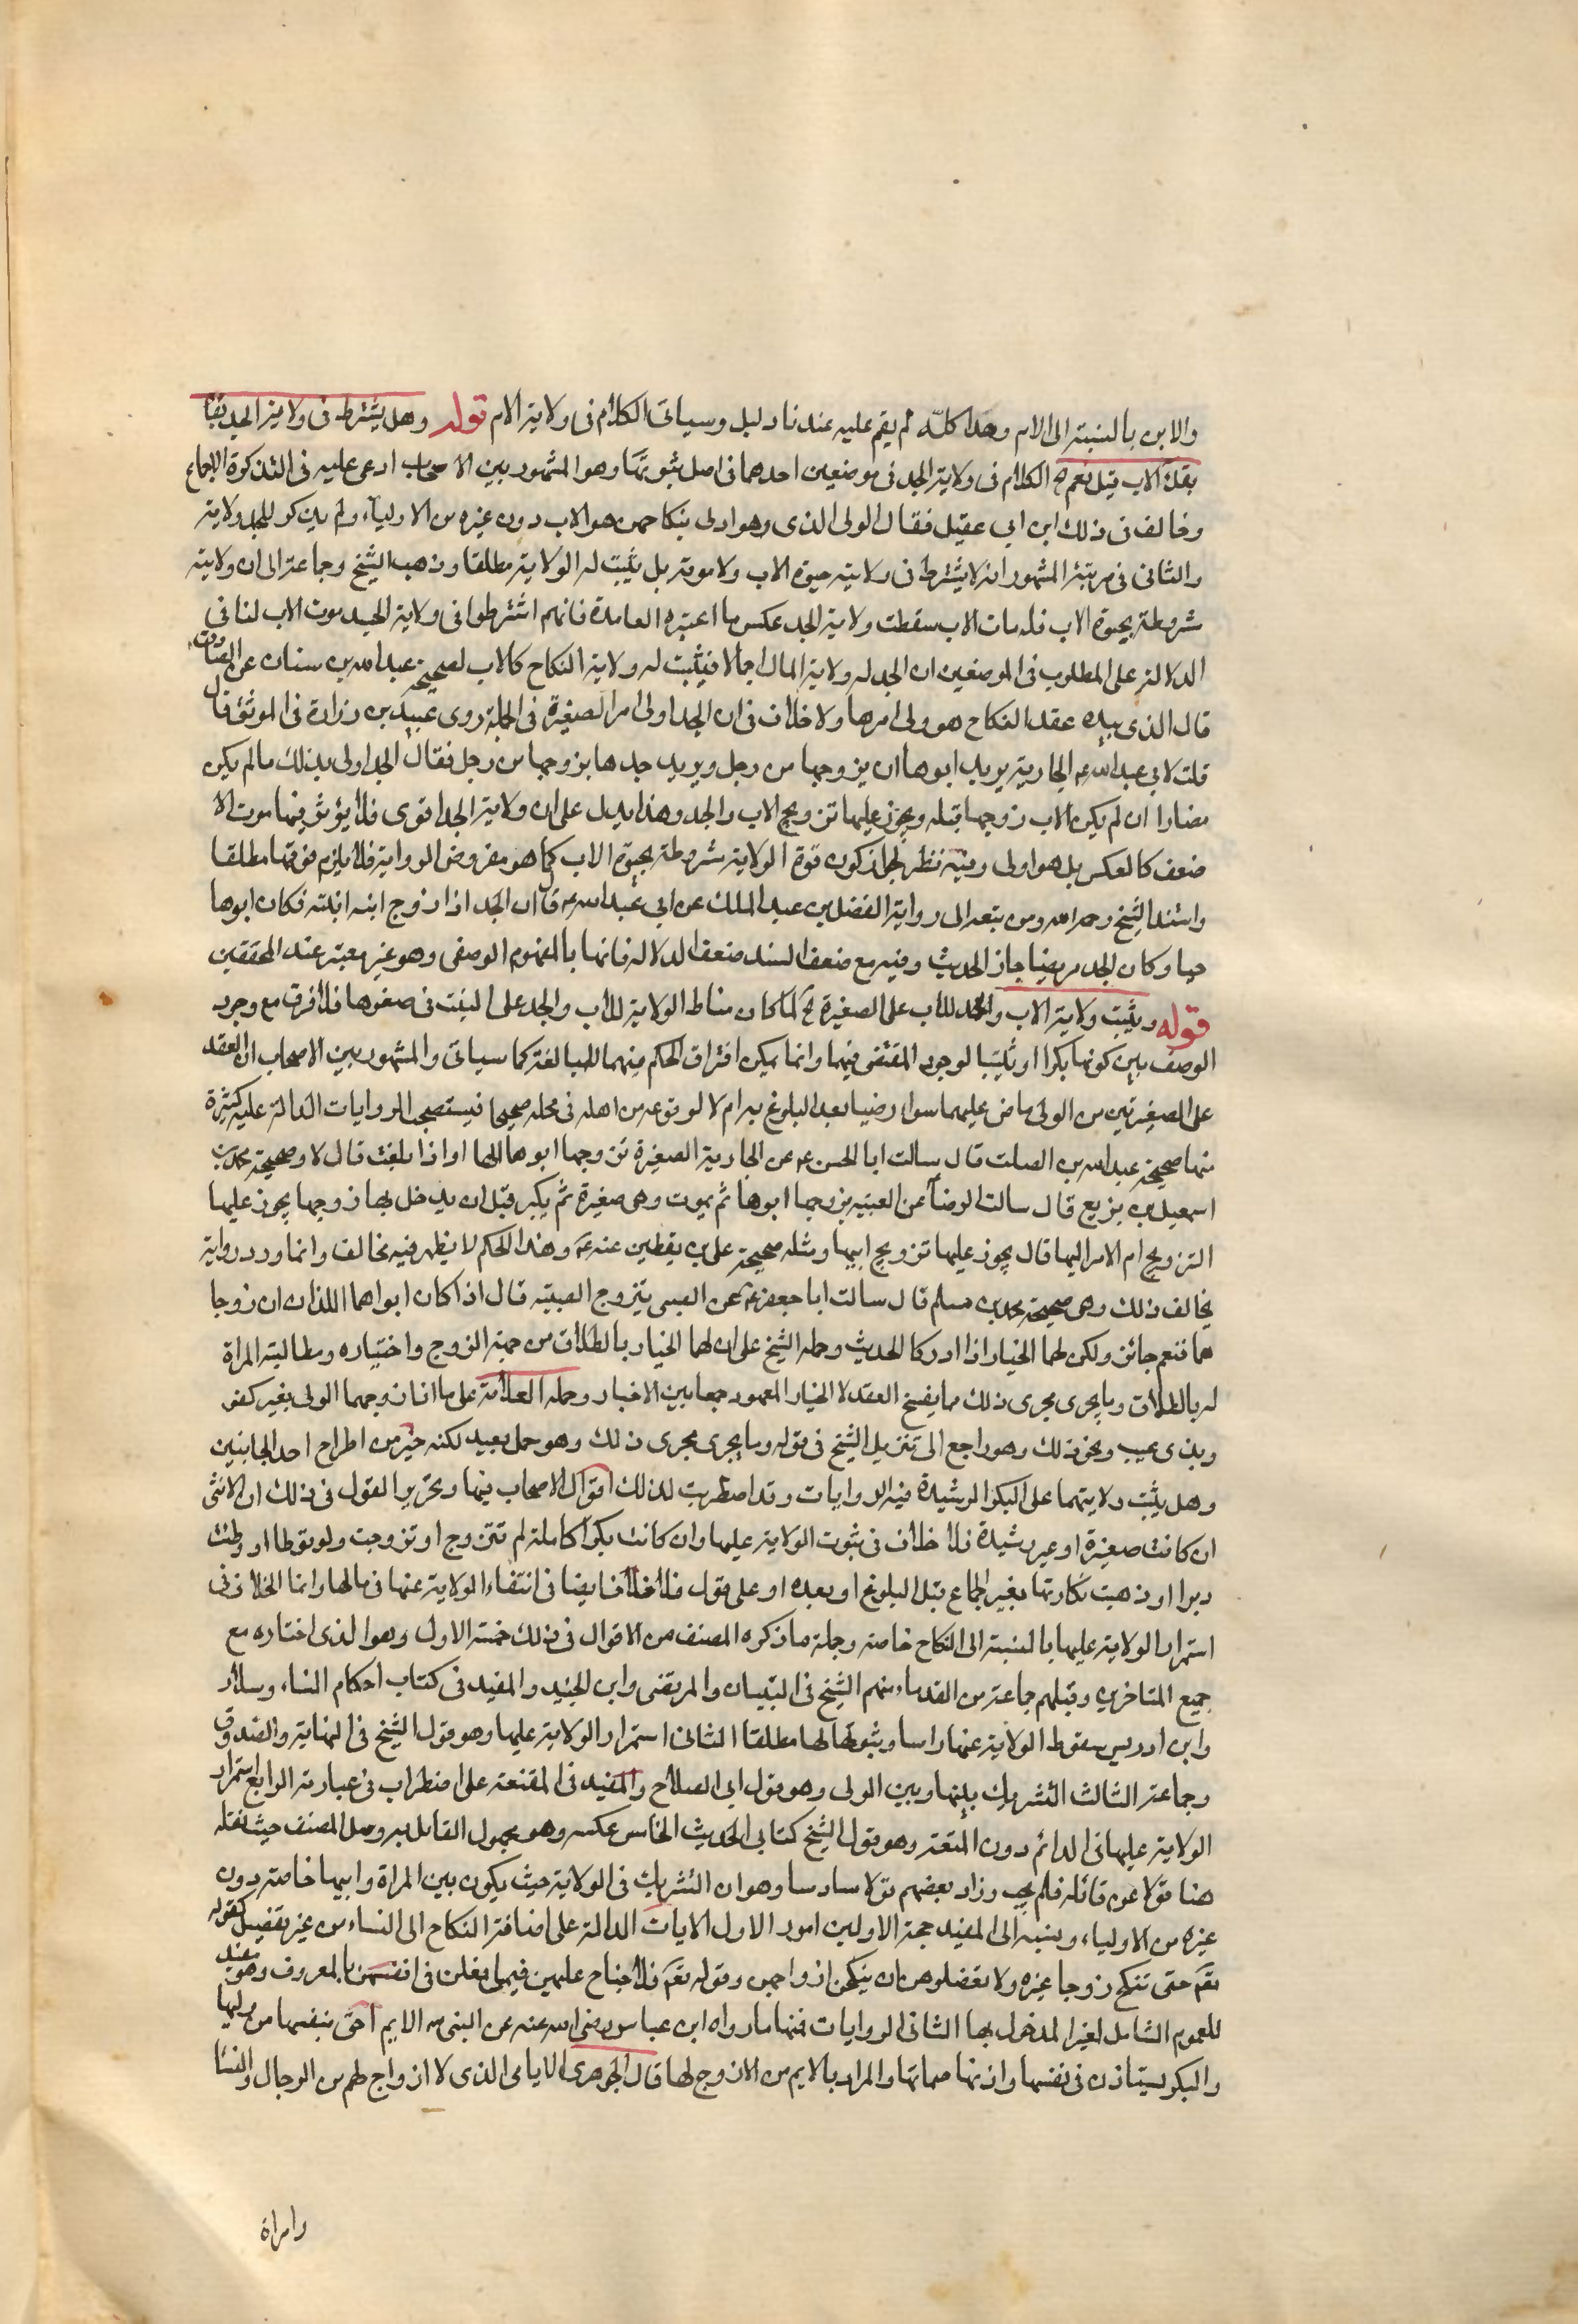 والابن بالنسبة الى الام وهذا كلّه لم يقم عليه عندنا دليل وسياتى الكلام فى ولاية الام قوله وهل يشترط فى ولاية الجد بقاء
الاب قيل نعم الخ الكلام فى ولاية الجد فى موضعين احدهما فى اصل ثبوتها وهو المشهور بين الاصحاب ادعى عليه فى التذكرة الاجماع
وخالف فى ذلك ابن ابي عقيل فقال الولى الذى وهو اولى بنكاحهن هو الاب دون غيره من الاولياء ولم يذكر للجد ولاية
والثانى فى مرتبته المشهور انه لا يشترط فى ولايته حيوة الاب ولا موته بل تثبت له الولاية مطلقا وذهب الشيخ وجماعة الى ان ولايته
مشروطة بحيوة الاب فلو مات الاب سقطت ولاية الجد عكس ما اعتبره العامة فانهم اشترطوا فى ولاية الجد موت الاب لنا فى
الدلالة على المطلوب فى الموضعين ان الجد له ولاية المال اجمالا فيثبت له ولاية النكاح كالاب لصحيحة عبد الله بن سنان عن الصادق
قال الذى بيده عقد النكاح هو ولى امرها ولا خلاف فى ان الجد اولى امر الصغيرة فى الجملة روى عبيد بن زرارة فى الموثق قال
قلت لابي عبد الله ع الجارية يريد ابوها ان يزوجها من رجل ويريد جدها يزوجها من رجل فقال الجد اولى بذلك ما لم يكن
مضارا ان لم يكن الاب زوجها قبله ويجوز عليها تزويج الاب والجد وهذا يدل على ان ولاية الجد اقوى فلا يؤثر فيها موت الا
ضعف كالعكس بل هو اولى وفيه نظر لجواز كون قوة الولاية مشروطة بحيوة الاب كما هو مفروض الرواية فلا يلزم قوتها مطلقا
واستند الشيخ رحمه الله ومن تبعه الى رواية الفضل بن عبد الملك عن ابي عبد الله ع قال ان الجد اذا زوج ابنة ابنه فكان ابوها
حيا وكان الجد مرضيا جاز الحديث وفيه مع ضعف السند ضعف الدلالة فانها بالمفهوم الوصفى وهو غير معتبر عند المحققين
قوله ويثبت ولاية الاب والجد للاب على الصغيرة الخ لما كان مناط الولاية للاب والجد على البنت فى صغرها فلا فرق مع وجود
الوصف بين كونها بكرا او ثيبا لوجود المقتضى فيهما وانما يمكن افتراق الحكم منهما للمبالغة كما سياتى والمشهور بين الاصحاب ان العقد
على الصغيرتين من الولى ماض عليهما سواء رضيا بعد البلوغ به ام لا لوقوعه من اهله فى محله صحيحا فيستصحب الروايات الدالة عليه كثيرة
منها صحيحة عبد الله بن الصلت قال سالت ابا الحسن ع عن الجارية الصغيرة تزوجها ابوها الها او اذا بلغت قال لا وصحيحة محمد بن
اسمعيل بن بزيع قال سالت الرضاع عن الصبية يزوجها ابوها ثم يموت وهى صغيرة ثم يكبر قبل ان يدخل بها زوجها يجوز عليها
التزويج ام الامر اليها قال يجوز عليها تزويج ابيها ومثله صحيحة على بن يقطين عنه ع وهذا الحكم لا يظهر فيه مخالف وانما ورد رواية
يخالف ذلك وهى صحيحة محمد بن مسلم قال سالت ابا جعفر ع عن الصبى يتزوج الصبية قال اذا كان ابواهما اللذان ان زوجا
هما فنعم جائز ولكن لهما الخيار اذا ادركا الحديث وحمله الشيخ على ان لهما الخيار بالطلاق من جهة الزوج واختياره ومطالبة المراة
له بالطلاق وما يجرى مجرى ذلك مما يفسخ العقد لا الخيار المعهود جمعا بين الاخبار وحمله العلامة على ما اذا زوجهما الولى بغير كفو
وبذى عيب ونحو ذلك وهو راجع الى تنزيل الشيخ فى قوله وما يجرى مجرى ذلك وهو حمل بعيد لكنه خير من اطراح احد الجانبين
وهل يثبت ولايتهما على البكر الرشيدة فيه الروايات وقد اضطربت لذلك اقوال الاصحاب فيها وتحرير القول فى ذلك ان الانثى
ان كانت صغيرة او غير رشيدة فلا خلاف فى ثبوت الولاية عليها وان كانت بكرا كاملة لم تتزوج او تزوجت ولم توطا او وطئت
دبرا او ذهبت بكارتها بغير الجماع قبل البلوغ او بعده او على قول فلا خلاف ايضا فى انتفاء الولاية عنها فى مالها وانما الخلاف فى
استمرار الولاية عليها بالنسبة الى النكاح خاصة وجملة ما ذكره المصنف من الاقوال فى ذلك خمسة الاول وهو الذى اختاره مع
جميع المتاخرين وقبلهم جماعة من القدماء منهم الشيخ فى التبيان والمرتضى وابن الجنيد والمفيد فى كتاب احكام النساء وسلار
وابن ادريس سقوط الولاية عنها راسا وثبوتها لها مطلقا الثانى استمرار الولاية عليها وهو قول الشيخ فى النهاية والصدوق
وجماعة الثالث التشريك بينها وبين الولى وهو قول ابي الصلاح والمفيد فى المقنعة على اضطراب فى عبارته الرابع استمرار
الولاية عليها فى الدائم دون المتعة وهو قول الشيخ كتابى الحديث الخامس عكسه وهو مجهول القائل بيد وصل المصنف حيث نقله
هنا قولا عن قائله فلم يجب وزاد بعضهم قولا سادسا وهو ان التشريك فى الولاية حيث يكون بين المراة وابيها خاصة دون
غيره من الاولياء ونسبه الى المفيد حجة الاولين امور الاول الايات الدالة على اضافة النكاح الى النساء من غير تفصيل كقوله
تع حتى تنكح زوجا غيره ولا تعضلوهن ان ينكحن ازواجهن وقوله تع فلا جناح عليهن فيما فعلن فى انفسهن بالمعروف وهو مفيد
للعموم الشامل لغير المدخول بها الثانى الروايات فمنها ما رواه ابن عباس رضى الله عنه عن النبى ص الايم احق بنفسها من وليها
والبكر يستاذن فى نفسها واذنها صماتها والمراد بالايم من لا زوج لها قال الجوهرى الايامى الذى لا ازواج لهم من الرجال والنساء
وامراة